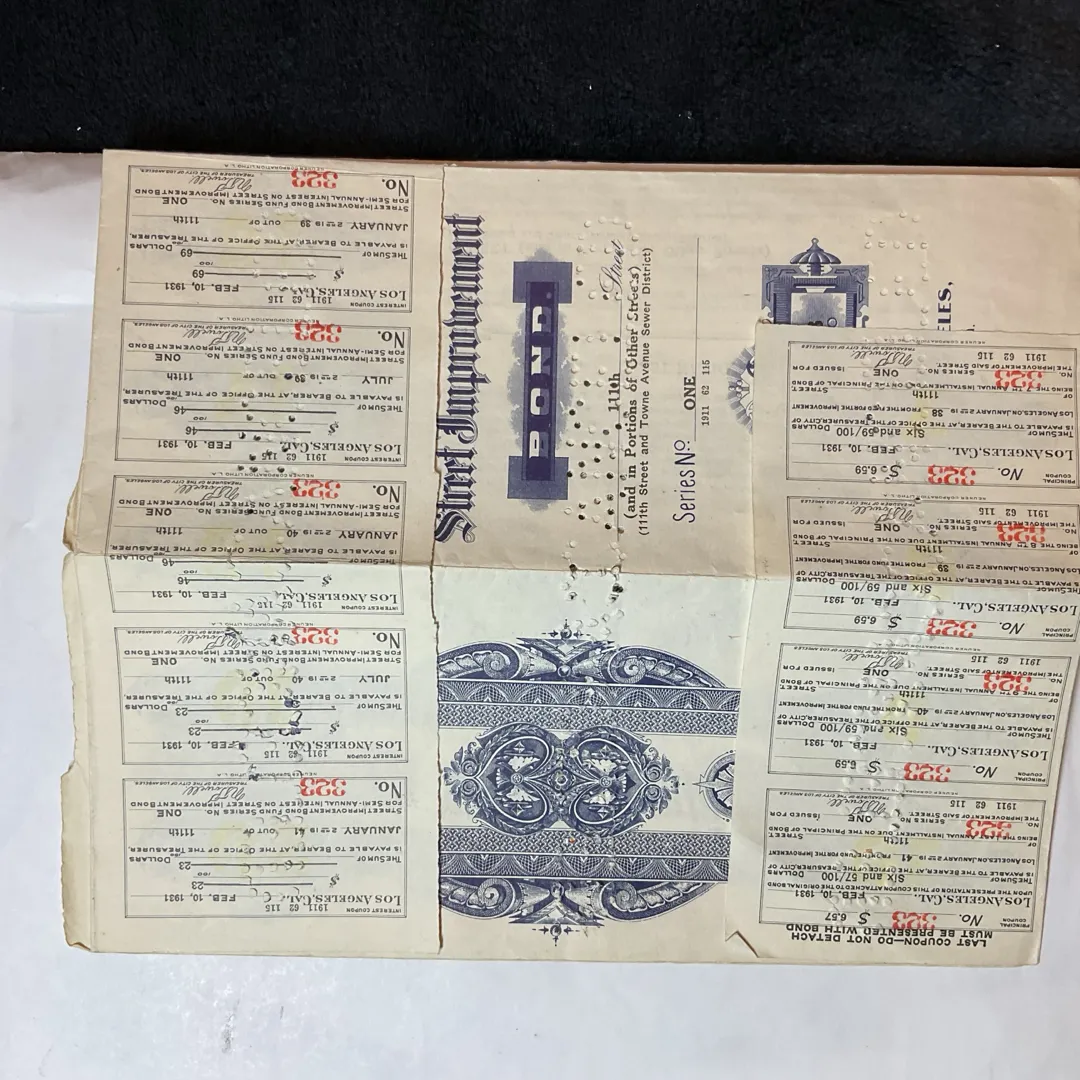 Street Improvement
BOND.
111th Street
(and in Portions of Other Streets)
(111th Street and Towne Avenue Sewer District)
Series No. ONE
1911 62 115
ELES,
INTEREST COUPON 1911 62 115
LOS ANGELES, CAL. FEB. 10, 1931
$ 69/100
THE SUM OF 69/100 DOLLARS
IS PAYABLE TO BEARER, AT THE OFFICE OF THE TREASURER,
JANUARY 2ND 19 39 OUT OF 111th
STREET IMPROVEMENT BOND FUND SERIES NO. ONE
FOR SEMI-ANNUAL INTEREST ON STREET IMPROVEMENT BOND
No. 323
TREASURER OF THE CITY OF LOS ANGELES.
NEUNER CORPORATION LITHO. L.A.
INTEREST COUPON 1911 62 115
LOS ANGELES, CAL. FEB. 10, 1931
$ 46/100
THE SUM OF 46/100 DOLLARS
IS PAYABLE TO BEARER, AT THE OFFICE OF THE TREASURER,
JULY 2ND 19 39 OUT OF 111th
STREET IMPROVEMENT BOND FUND SERIES NO. ONE
FOR SEMI-ANNUAL INTEREST ON STREET IMPROVEMENT BOND
No. 323
TREASURER OF THE CITY OF LOS ANGELES.
NEUNER CORPORATION LITHO. L.A.
INTEREST COUPON 1911 62 115
LOS ANGELES, CAL. FEB. 10, 1931
$ 46
THE SUM OF 46 DOLLARS
IS PAYABLE TO BEARER, AT THE OFFICE OF THE TREASURER,
JANUARY 2ND 19 40 OUT OF 111th
STREET IMPROVEMENT BOND FUND SERIES NO. ONE
FOR SEMI-ANNUAL INTEREST ON STREET IMPROVEMENT BOND
No. 323
TREASURER OF THE CITY OF LOS ANGELES.
NEUNER CORPORATION LITHO. L.A.
INTEREST COUPON 1911 62 115
LOS ANGELES, CAL. FEB. 10, 1931
$ 23/100
THE SUM OF 23/100 DOLLARS
IS PAYABLE TO BEARER, AT THE OFFICE OF THE TREASURER,
JULY 2ND 19 40 OUT OF 111th
STREET IMPROVEMENT BOND FUND SERIES NO. ONE
FOR SEMI-ANNUAL INTEREST ON STREET IMPROVEMENT BOND
No. 323
TREASURER OF THE CITY OF LOS ANGELES.
NEUNER CORPORATION LITHO. L.A.
INTEREST COUPON 1911 62 115
LOS ANGELES, CAL. FEB. 10, 1931
$ 23/100
THE SUM OF 23/100 DOLLARS
IS PAYABLE TO BEARER, AT THE OFFICE OF THE TREASURER,
JANUARY 2ND 19 41 OUT OF 111th
STREET IMPROVEMENT BOND FUND SERIES NO. ONE
FOR SEMI-ANNUAL INTEREST ON STREET IMPROVEMENT BOND
No. 323
TREASURER OF THE CITY OF LOS ANGELES.
NEUNER CORPORATION LITHO. L.A.
PRINCIPAL COUPON No. 323 $ 6.59
LOS ANGELES, CAL. FEB. 10, 1931
THE SUM OF Six and 59/100 DOLLARS
IS PAYABLE TO THE BEARER, AT THE OFFICE OF THE TREASURER, CITY OF
LOS ANGELES, ON JANUARY 2ND 19 38 FROM THE FUND FOR THE IMPROVEMENT
OF 111th STREET,
BEING THE 7 TH ANNUAL INSTALMENT DUE ON THE PRINCIPAL OF BOND
No. 323 SERIES No. ONE ISSUED FOR
THE IMPROVEMENT OF SAID STREET.
1911 62 115
PRINCIPAL COUPON No. 323 $ 6.59
LOS ANGELES, CAL. FEB. 10, 1931
THE SUM OF Six and 59/100 DOLLARS
IS PAYABLE TO THE BEARER, AT THE OFFICE OF THE TREASURER, CITY OF
LOS ANGELES, ON JANUARY 2ND 19 39 FROM THE FUND FOR THE IMPROVEMENT
OF 111th STREET,
BEING THE 8 TH ANNUAL INSTALMENT DUE ON THE PRINCIPAL OF BOND
No. 323 SERIES No. ONE ISSUED FOR
THE IMPROVEMENT OF SAID STREET.
1911 62 115
PRINCIPAL COUPON No. 323 $ 6.59
LOS ANGELES, CAL. FEB. 10, 1931
THE SUM OF Six and 59/100 DOLLARS
IS PAYABLE TO THE BEARER, AT THE OFFICE OF THE TREASURER, CITY OF
LOS ANGELES, ON JANUARY 2ND 19 40 FROM THE FUND FOR THE IMPROVEMENT
OF 111th STREET,
BEING THE 9 TH ANNUAL INSTALMENT DUE ON THE PRINCIPAL OF BOND
No. 323 SERIES No. ONE ISSUED FOR
THE IMPROVEMENT OF SAID STREET.
1911 62 115
LAST COUPON—DO NOT DETACH
MUST BE PRESENTED WITH BOND
PRINCIPAL COUPON No. 323 $ 6.57
LOS ANGELES, CAL. FEB. 10, 1931
UPON THE PRESENTATION OF THIS COUPON ATTACHED TO THE BOND, ORIGINAL
THE SUM OF Six and 57/100 DOLLARS
IS PAYABLE TO THE BEARER, AT THE OFFICE OF THE TREASURER, CITY OF
LOS ANGELES, ON JANUARY 2ND 19 41 FROM THE FUND FOR THE IMPROVEMENT
OF 111th STREET,
BEING THE LAST ANNUAL INSTALMENT DUE ON THE PRINCIPAL OF BOND
No. 323 SERIES No. ONE ISSUED FOR
THE IMPROVEMENT OF SAID STREET.
1911 62 115